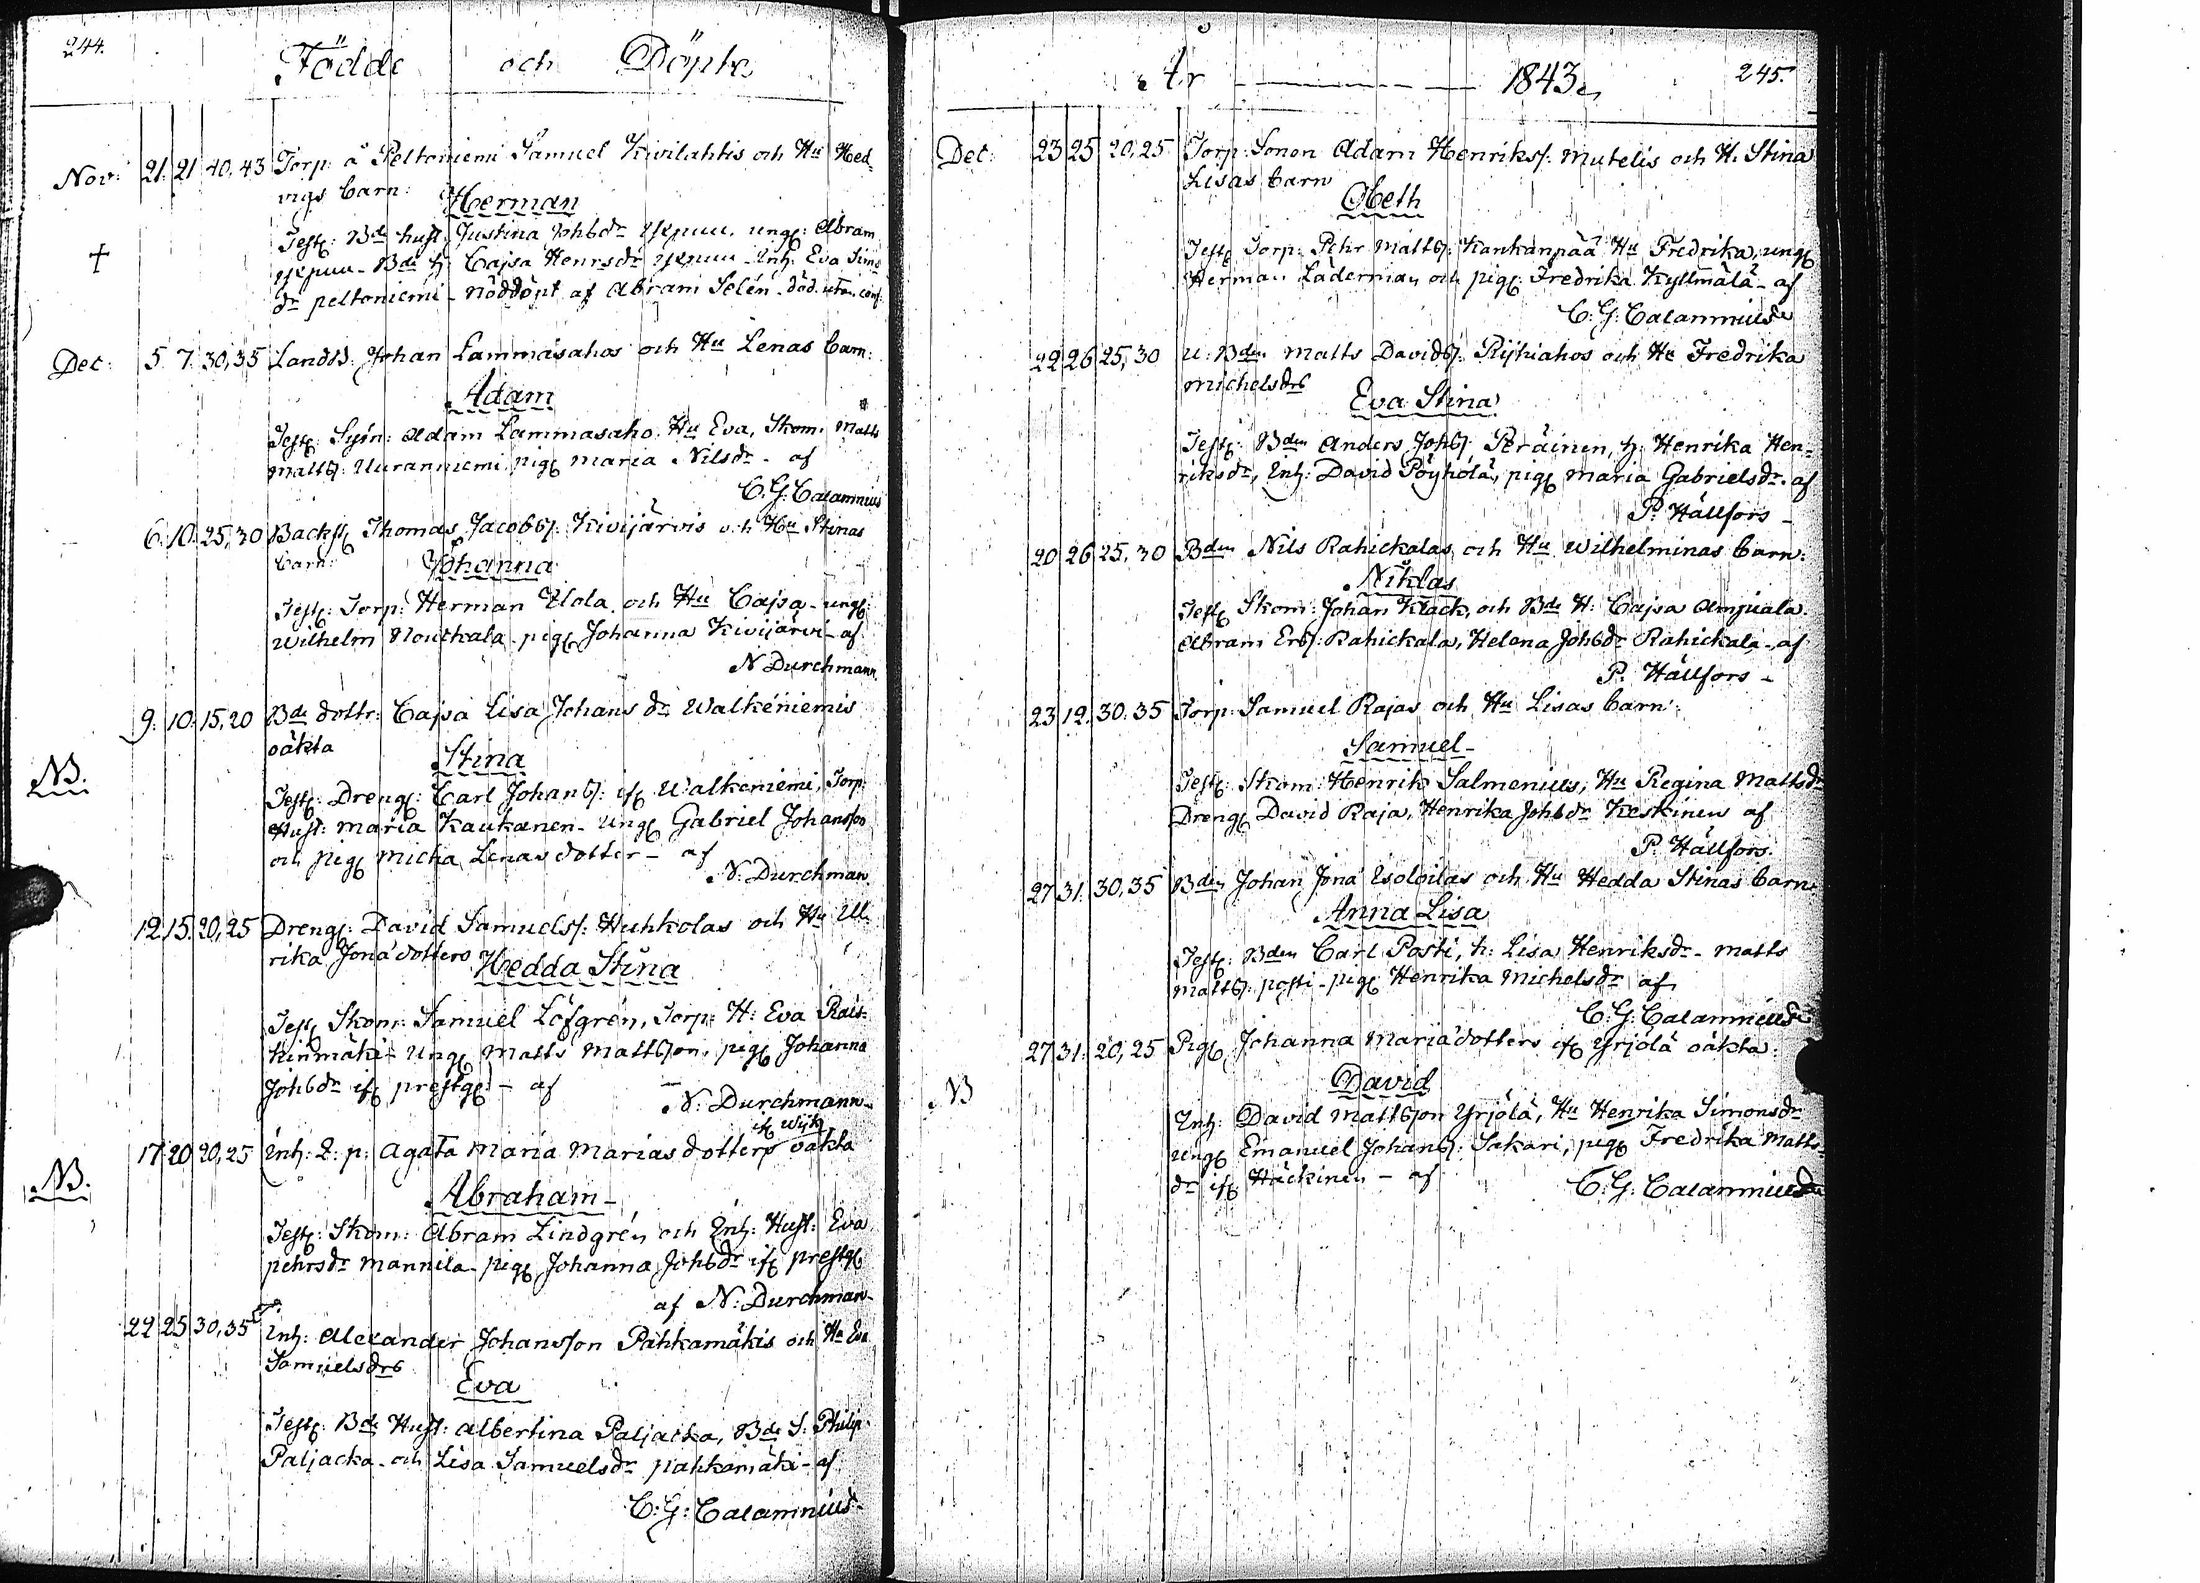 244.
Födde och Döpte
Nov: 21. 21 40, 43 Torp: å Peltoniemi Samuel Kivilahtis och Hu Hed-
vigs barn:
Herman
Test: Bde hust. Justina Johsdr ungg: Abram
Bde h: Cajsa Henrsdr Inh: Eva Sims
dr peltoniemi - nöddöpt af Abram Selén - död utan conf:
Dec: 5 7. 30, 35 Landsb: Johan Lammasahos och Hu Lenas barn:
Adam
Test: Sysn: Adam Lammasaho. Hu Eva, Skom. Matts
Matts: Uuranniemi, pig Maria Nilsdr - af
C. G. Calamnius
6. 10. 25, 30 Backst Thomas Jacobs: Kivijärvis och Hu Stinas
barn:
Johanna
Test: Torp: Herman Ulola och Hu Cajsa - ungg:
Wilhelm Noutkala - pig Johanna Kivijärvi - af
N Durchmann.
9. 10. 15, 20 Bde dottr: Cajsa Lisa Johans dr Walkeniemis
oäkta
Stina
NB.
Test: Dreng: Carl Johans: if Walkeniemi, Torp:
Hust: Maria Kaukanen - Ungg Gabriel Johansson
och Pig Micha Lenasdotter - af
N: Durchman.
12. 15. 20, 25 Dreng: David Samuels: Huhkolas och Hu Ul-
rika Jonädotters
Hedda Stina
Test Skom: Samuel Löfgrén, Torp: H: Eva Rais-
kinmäki - Ungg Matts Mattson, pig Johanna
Johsdr if prestg - af
N: Durchmann
if Wijk
17 20 20, 25 Inh: Q: p: Agata Maria Mariasdotters oäkta
NB.
Abraham -
Test: Skom: Abram Lindgrén och Inh: Hust: Eva
Pehrsdr Mannila - pig Johanna Johsdr if prestg
af N: Durchman
22 25 30, 35 Inh: Alexander Johansson Pahkamäkis och Hu Eva
Samuelsdrs
Eva
Test: Bde Hust: Albertina Paljacka, Bde S: Philip
Paljacka - och Lisa Samuelsdr pahkamäki - af
C: G: Calamnius
År 1843 245.
Dec: 23 25 20, 25 Torp: Sonen Adam Henriks: Mutelis och H. Stina
Lisas barn
Obeth
Test Torp: Pehr Matts: Kankanpää Hu Fredrika, ungg
Herman Läderman och pig: Fredrika Kyllmälä - af
C: G: Calamnius
22 26 25, 30 U: Bden Matts Davids: Rijhiahos och Hu Fredrika
Michelsdrs
Eva Stina
Test: Bden Anders Johs: Peräinen, h: Henrika Hen-
riksdr, Inh: David Pöyhölä, pig Maria Gabrielsdr. af
P. Hällfors -
20 26 25, 30 Bden Nils Rahickalas och Hu Wilhelminas barn:
Niklas
Test Skom: Johan Klack, och Bde H: Cajsa Ampiala.
Abram Ers: Rahickala, Helena Johsdr Rahickala - af
P. Hällfors -
23 12. 30. 35 Torp: Samuel Rajas och Hu Lisas barn:
Samuel -
Test: Skom: Henrik Salmenius, Hu Regina Mattsdr
Dreng David Raja, Henrika Johsdr Keskinen af
P. Hällfors.
27 31. 30, 35 Bden Johan Jona Isoloilas och Hu Hedda Stinas barn
Anna Lisa
Test: Bden Carl Posti, h: Lisa Henriksdr - Matts
Matts: posti - pig Henrika Michelsdr af
C: G: Calamnius
27 31. 20, 25 Pig Johanna Mariädotters if Yrjölä oäkta:
NB
David
Inh: David Mattson Yrjölä, Hu Henrika Simonsdr
ungg Emanuel Johans: Sakari, pig Fredrika Matts-
dr if Häckinen - af C: G: Calamnius